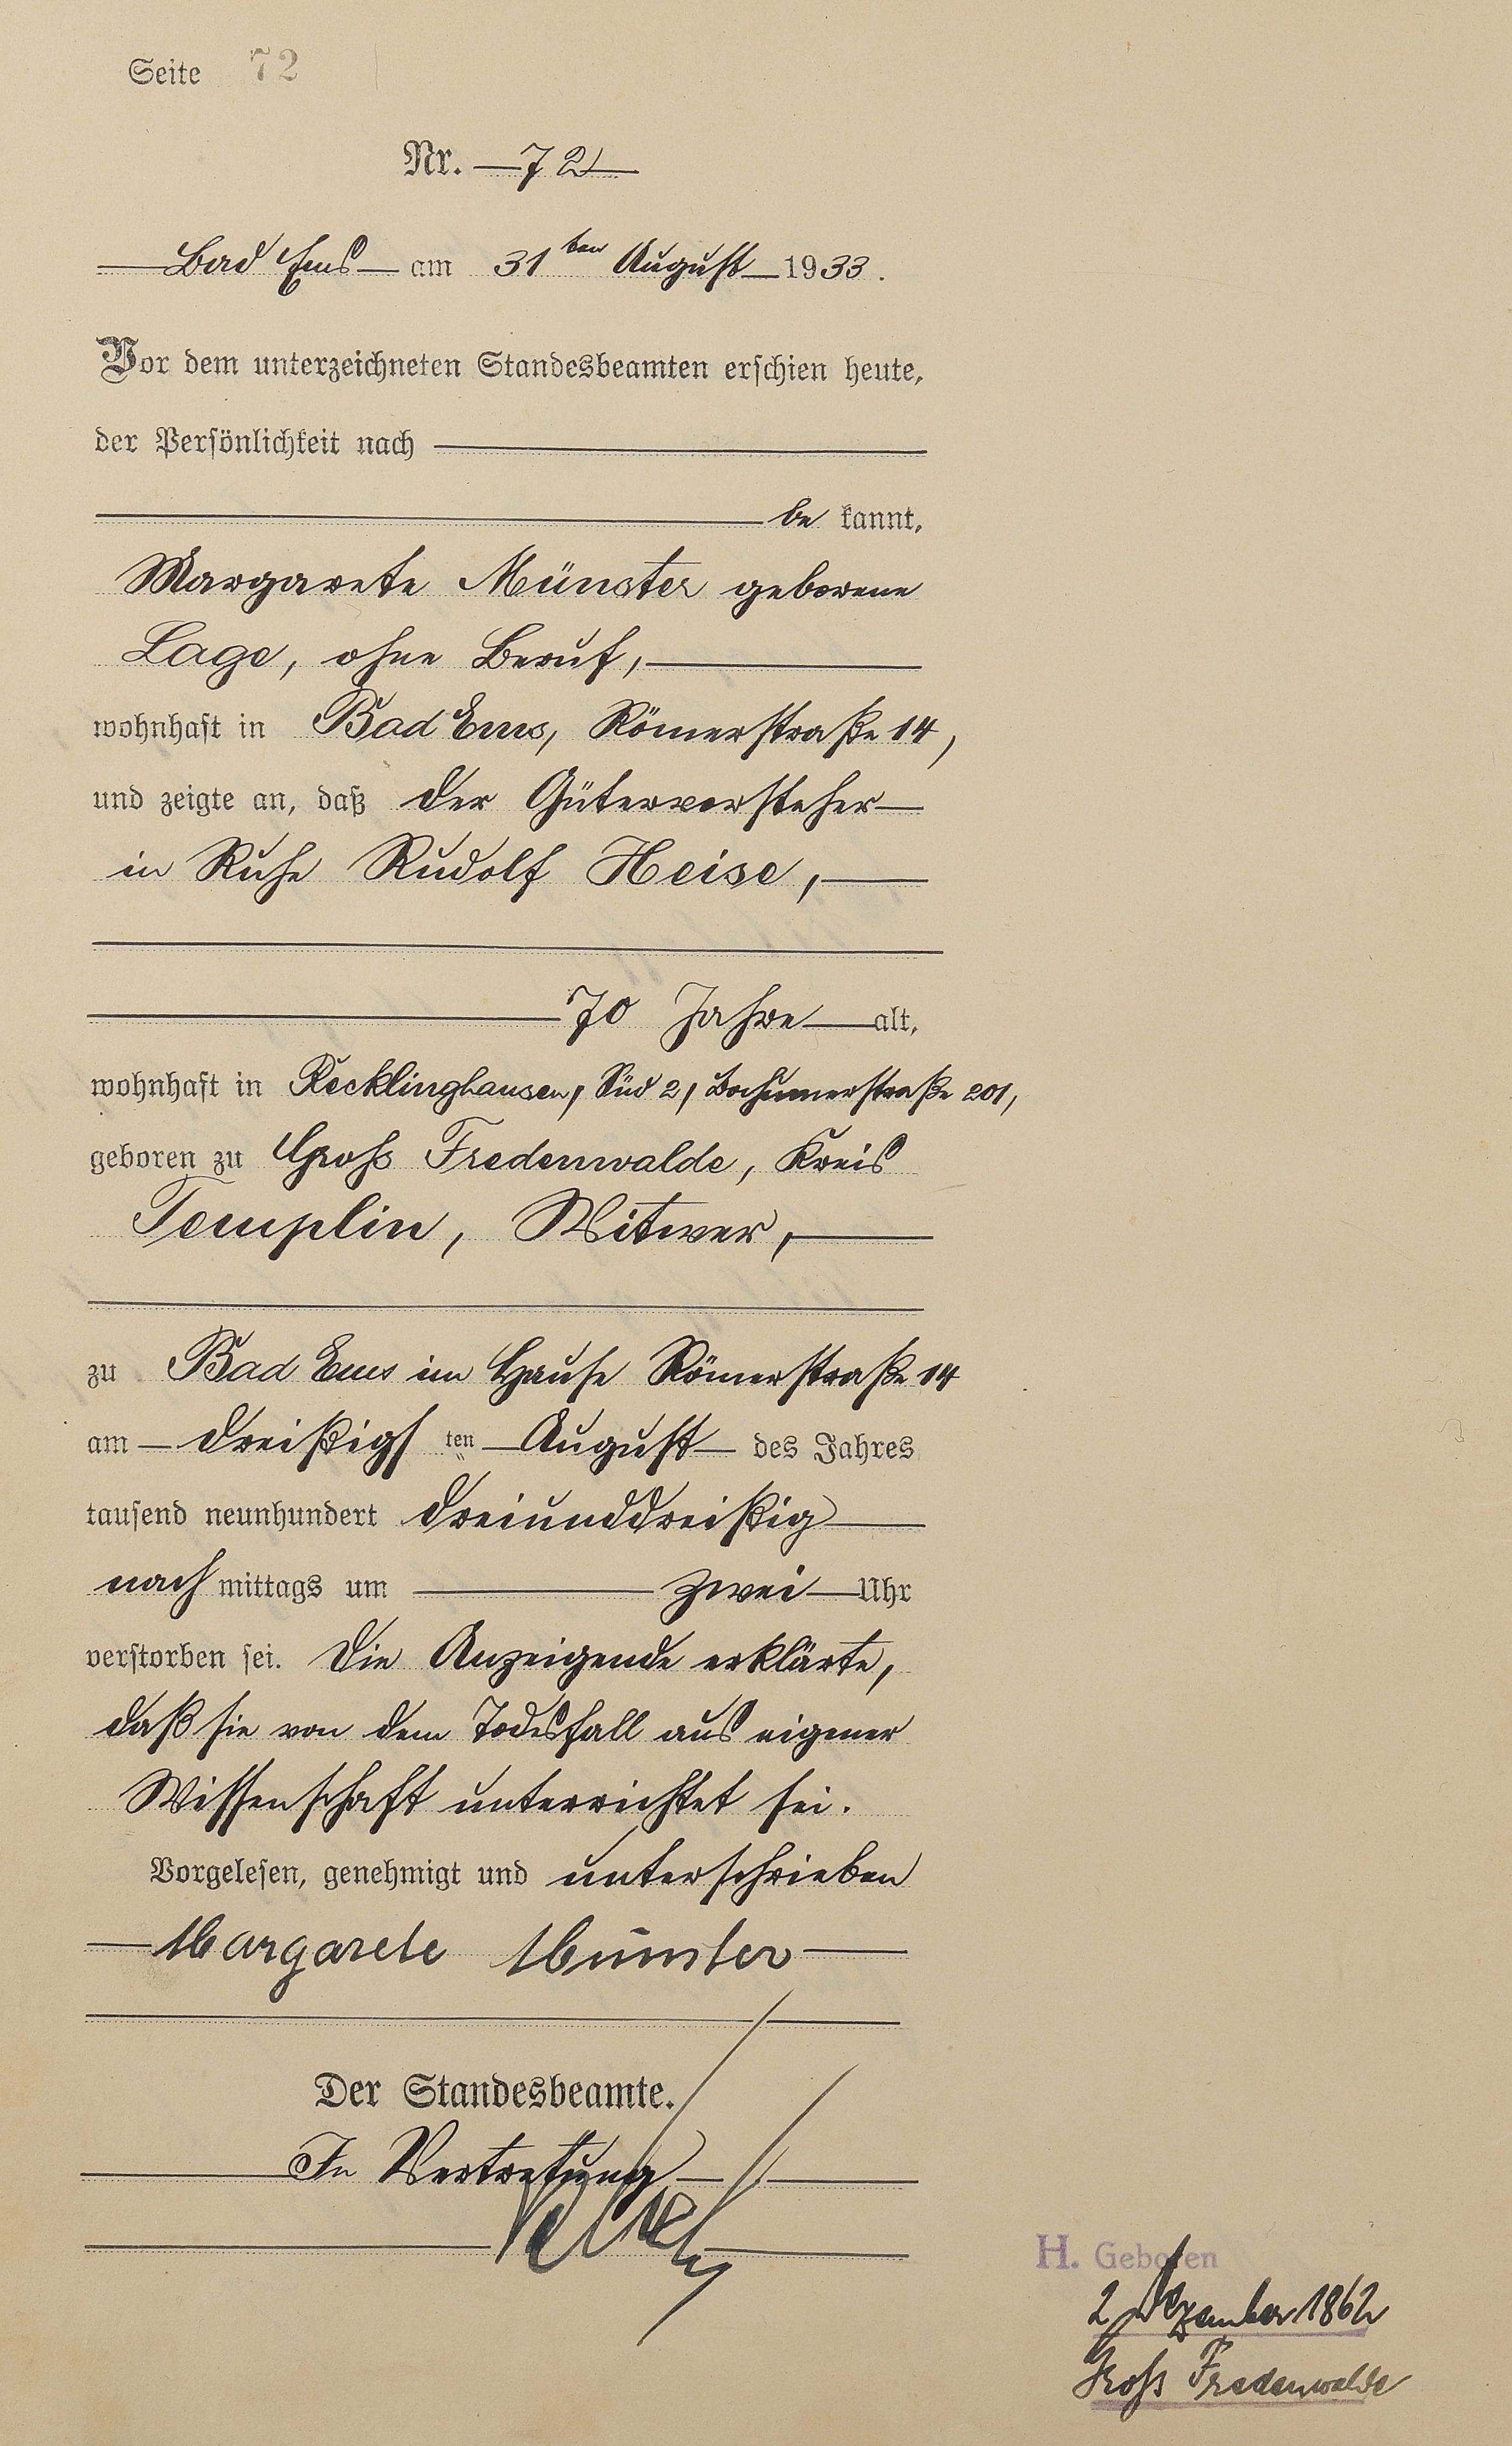 Seite 72
Nr. 72
Bad Ems am 31ten August 1933.
Vor dem unterzeichneten Standesbeamten erschien heute,
der Persönlichkeit nach
be kannt,
Margarete Münster geborene
Lage, ohne Beruf,
wohnhaft in Bad Ems, Römerstraße 14,
und zeigte an, daß der Gütervorsteher
in Ruhe Rudolf Heise,
70 Jahre alt,
wohnhaft in Recklinghausen, Süd 2, Bochumerstraße 201,
geboren zu Groß Fredenwalde, Kreis
Templin, Witwer,
zu Bad Ems im Hause Römerstraße 14
am dreißigs ten August des Jahres
tausend neunhundert dreiunddreißig
nach mittags um zwei Uhr
verstorben sei. Die Anzeigende erklärte,
daß sie von dem Todesfall aus eigener
Wissenschaft unterrichtet sei.
Vorgelesen, genehmigt und unterschrieben
Margarete Münster
Der Standesbeamte.
In Vertretung
H. Geboren
2. Dezember 1862
Groß Fredenwalde